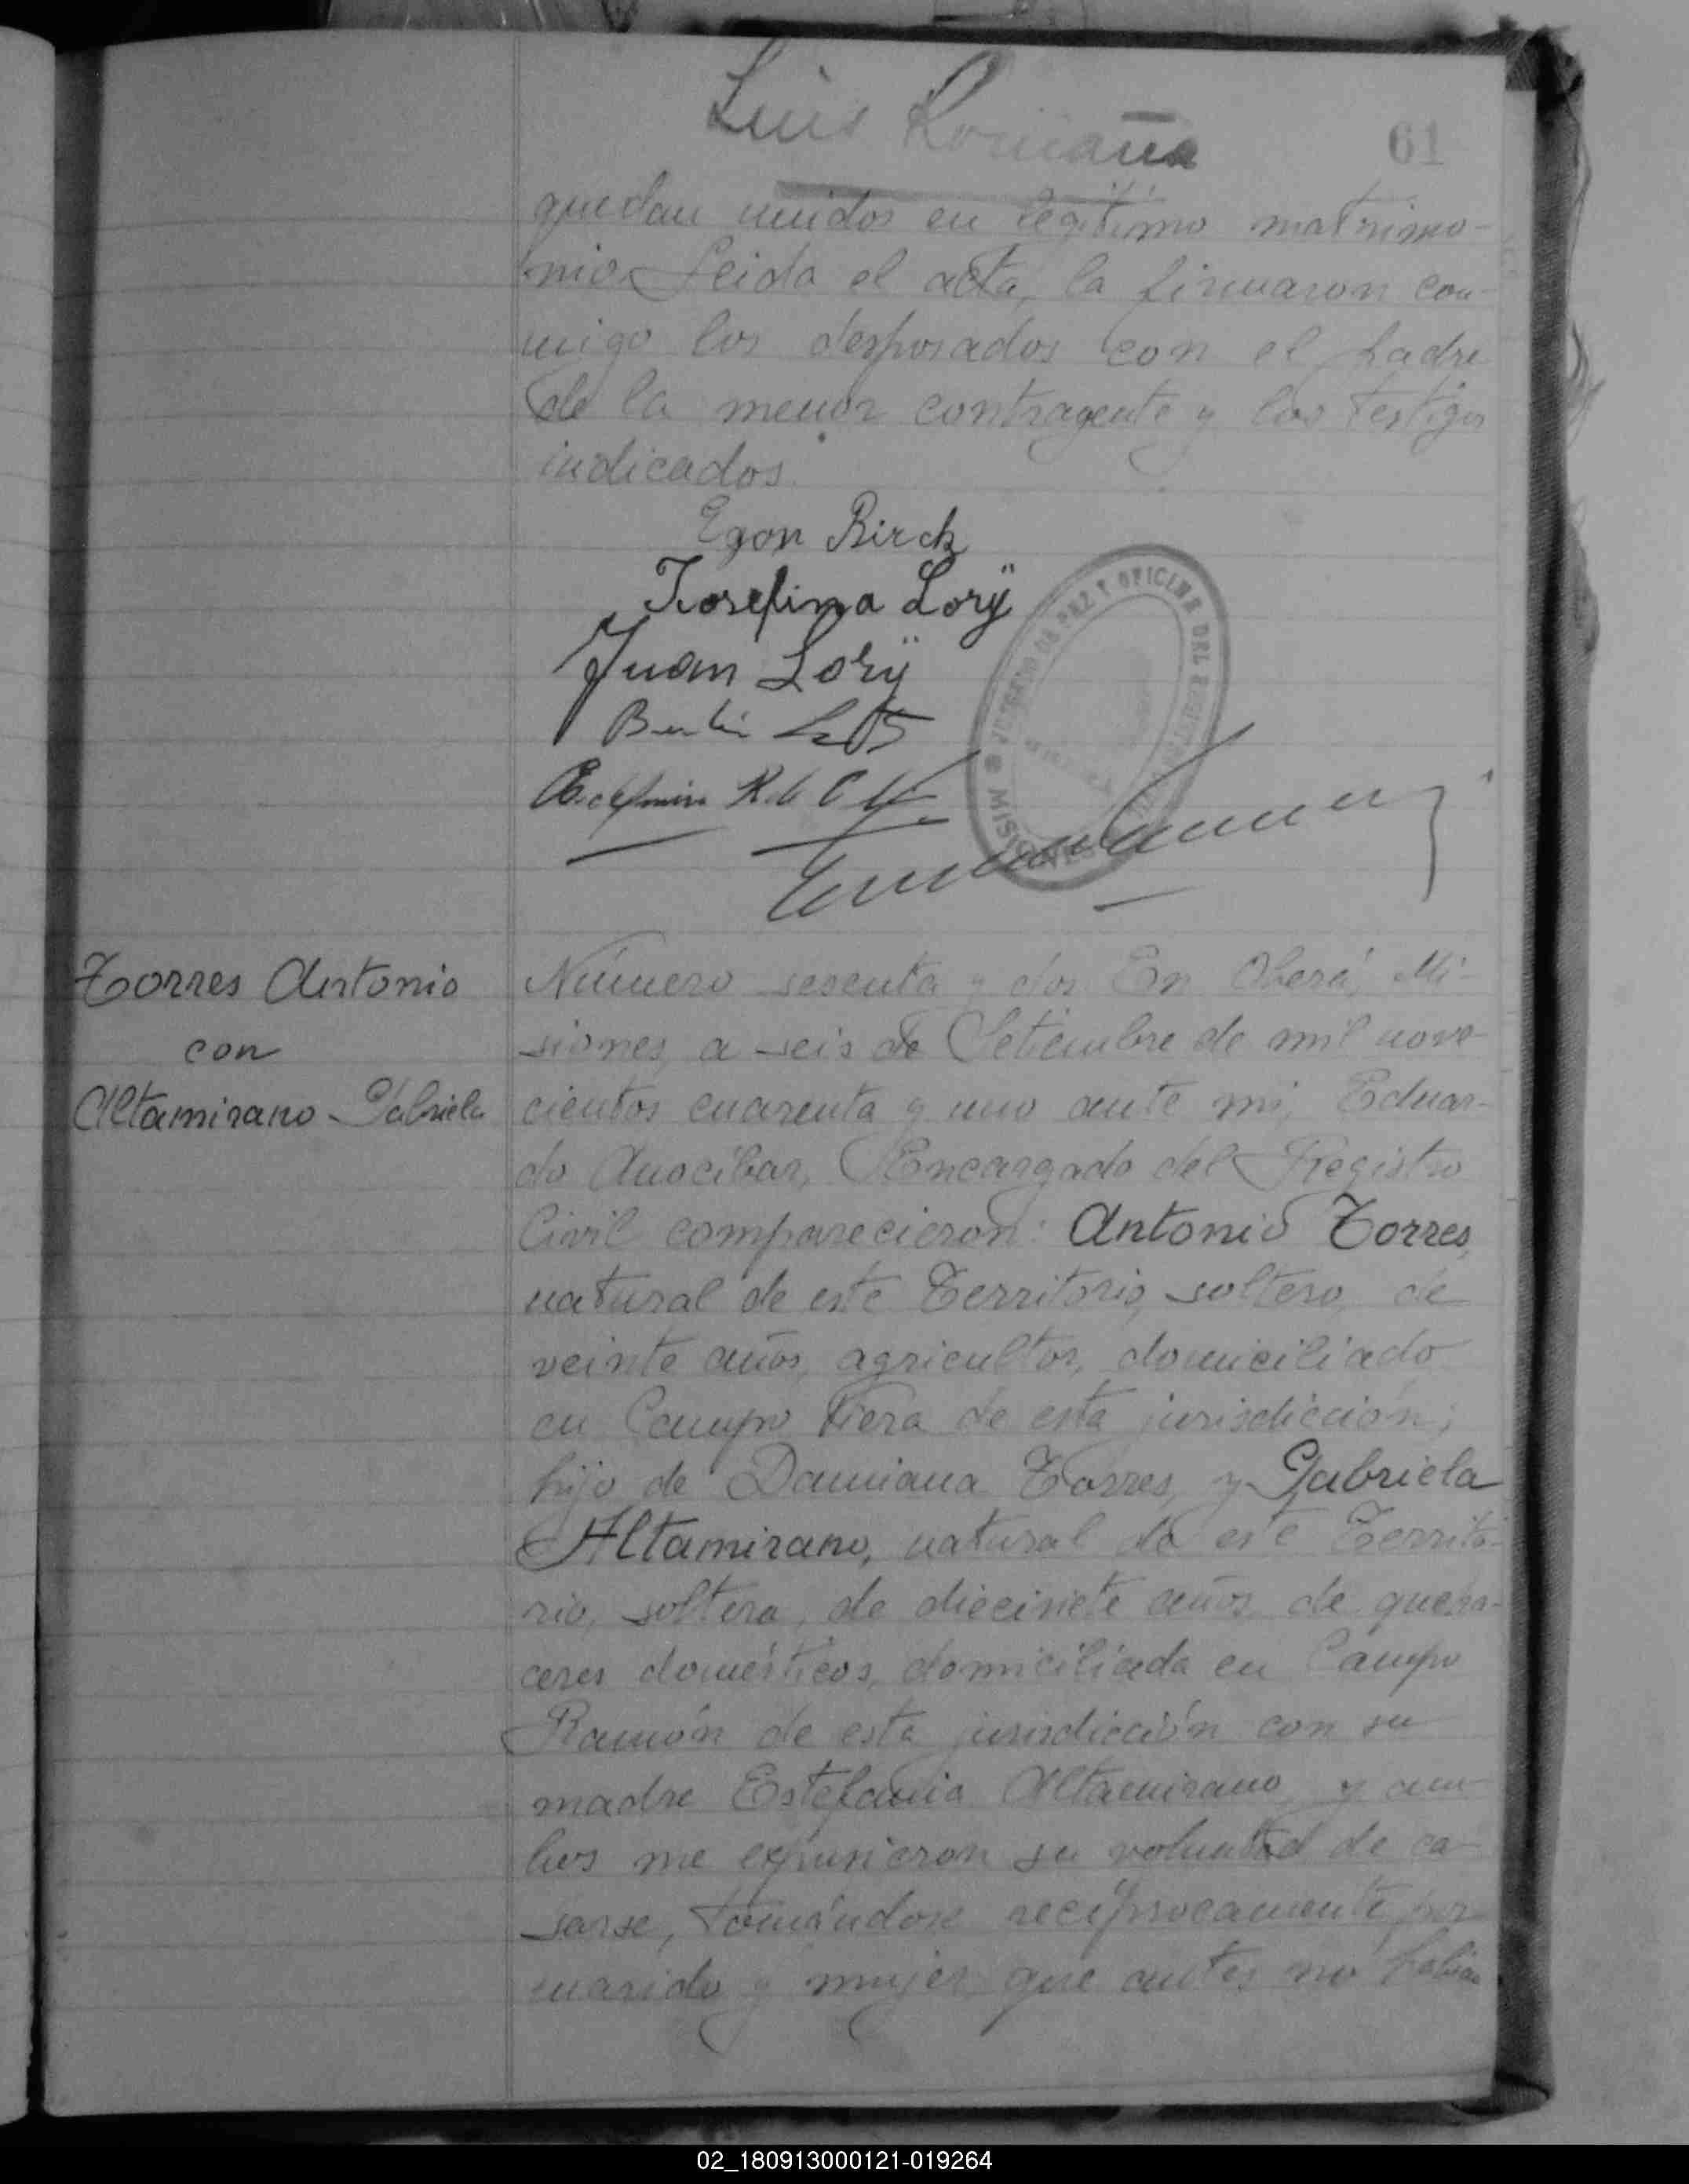 Luis Romaña
61
quedan unidos en legítimo matrimo-
nio. Leida el acta, la firmaron con-
migo los desposados con el padre
de la menor contrayente y los testigos
indicados.
Egon Birck
Josefina Lorÿ
Juan Lorÿ
JUZGADO DE PAZ Y OFICINA DEL
MISIONES
Torres Antonio
con
Altamirano Gabriela
Número sesenta y dos En Oberá, Mi-
siones, a seis de Setiembre de mil nove-
cientos cuarenta y uno ante mi, Eduar-
do Anocibar, Encargado del Registro
Civil comparecieron: Antonio Torres,
natural de este Territorio, soltero, de
veinte años, agricultor, domiciliado
en Campo Viera de esta jurisdicción;
hijo de Damiana Torres, y Gabriela
Altamirano, natural de este Territo-
rio, soltera, de diecisiete años, de queha-
ceres domésticos, domiciliada en Campo
Ramón de esta jurisdicción con su
madre Estefania Altamirano y am-
bos me expusieron su voluntad de ca-
sarse, tomándose recíprocamente por
marido y mujer, que antes no habian
02_180913000121-019264